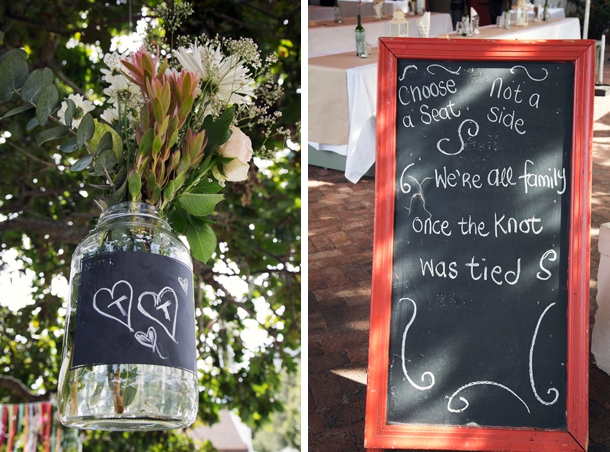 T T
Choose Not a
a Seat. side
We're all family
once the Knot
was tied